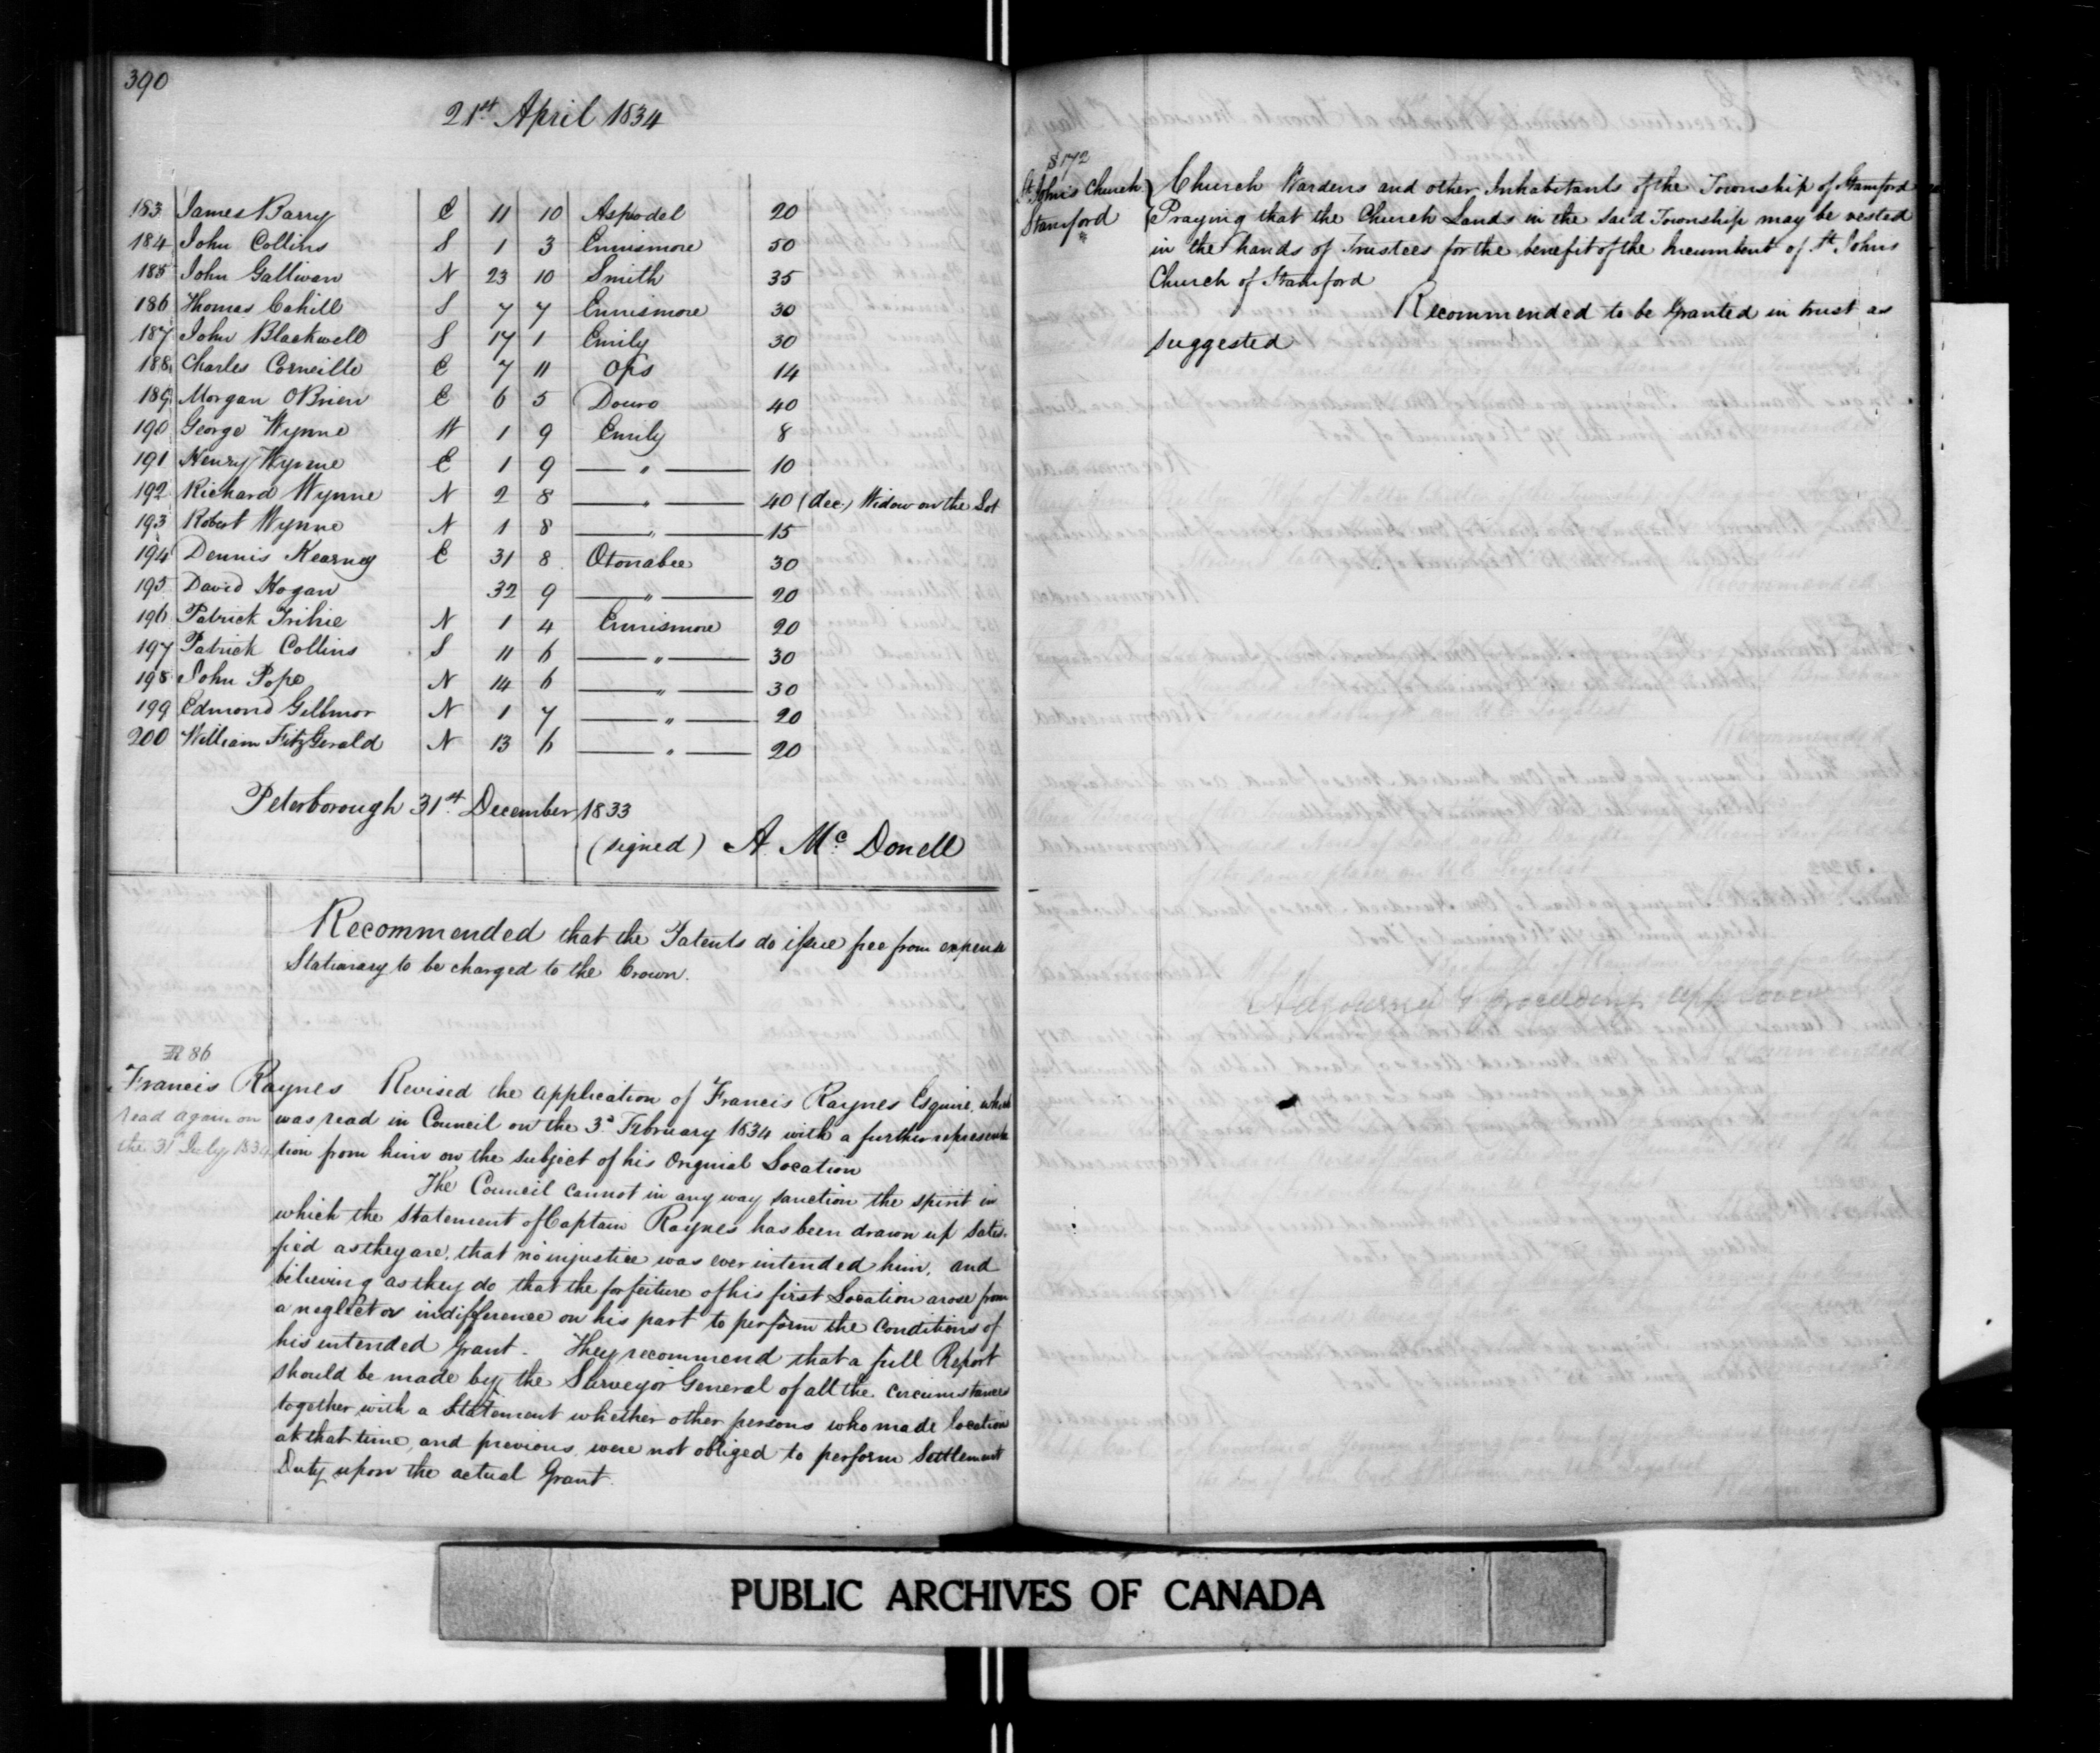 390
21st April 1834
183 James Barry E 11 10 Asphodel 20
184 John Collins S 1 3 Ennismore 50
185 John Galliwan N 23 10 Smith 35
186 Thomas Cahill S 7 7 Ennismore 30
187 John Blackwell S 17 1 Emily 30
188 Charles Corneille E 7 11 Ops 14
189 Morgan OBrien E 6 5 Douro 40
190 George Wynne W 1 9 Emily 8
191 Henry Wynne E 1 9 — " — 10
192 Richard Wynne N 2 8 — " — 40 (dec.) Widow on the Lot
193 Robert Wynne N 1 8 — " — 15
194 Dennis Kearney E 31 8 Otonabee 30
195 David Hogan 32 9 — " — 20
196 Patrick Trihie N 1 4 Ennismore 20
197 Patrick Collins S 11 6 — " — 30
198 John Pope N 14 6 — " — 30
199 Edmond Gillmor N 1 7 — " — 20
200 William FitzGerald N 13 6 — " — 20
Peterborough 31st December 1833
(signed) A. Mc Donell
Recommended that the Patents do issue free from expense
Stationary to be charged to the Crown.
R 86
Francis Raynes Revised the application of Francis Raynes Esquire, which
read again on
the 31 July 1834
was read in Council on the 3d February 1834 with a further representa
tion from him on the subject of his Original Location
The Council cannot in any way sanction the spirit in
which the statement of Captain Raynes has been drawn up satis-
fied as they are, that no injustice was ever intended him, and
believing as they do that the forfeiture of his first Location arose from
a neglect or indifference on his part to perform the conditions of
his intended Grant. They recommend that a full Report
should be made by the Surveyor General of all the circumstances
together with a Statement whether other persons who made location
at that time, and previous were not obliged to perform Settlement
Duty upon the actual Grant.
S 172
St. Johns Church
Stamford
Church Wardens and other Inhabitants of the Township of Stamford
Praying that the Church Lands in the said Township may be vested
in the hands of Trustees for the benefit of the Incumbent of St. Johns
Church of Stamford
Recommended to be Granted in trust as
suggested
PUBLIC ARCHIVES OF CANADA